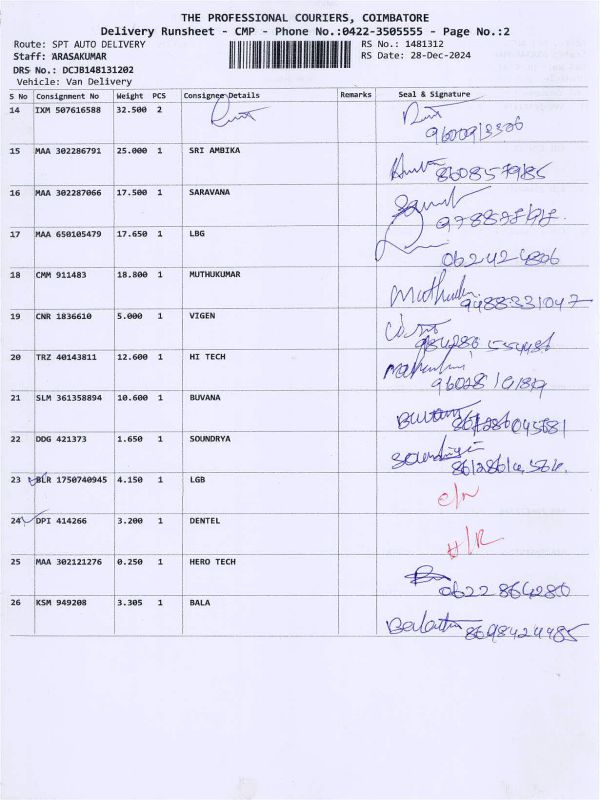 THE PROFESSIONAL COURIERS, COIMBATORE
Delivery Runsheet - CMP - Phone No.:0422-3505555 - Page No.:2
Route: SPT AUTO DELIVERY RS No.: 1481312
Staff: ARASAKUMAR RS Date: 28-Dec-2024
DRS No.: DCJB148131202
Vehicle: Van Delivery
S No Consignment No Weight PCS Consignee Details Remarks Seal & Signature
14 IXM 507616588 32.500 2
15 MAA 302286791 25.000 1 SRI AMBIKA
8608579185
16 MAA 302287066 17.500 1 SARAVANA
17 MAA 650105479 17.650 1 LBG
18 CMM 911483 18.800 1 MUTHUKUMAR
9488331047
19 CNR 1836610 5.000 1 VIGEN
20 TRZ 40143811 12.600 1 HI TECH
21 SLM 361358894 10.600 1 BUVANA
22 DDG 421373 1.650 1 SOUNDRYA
23 BLR 1750740945 4.150 1 LGB
24 DPI 414266 3.200 1 DENTEL
H/R
25 MAA 302121276 0.250 1 HERO TECH
0622864280
26 KSM 949208 3.305 1 BALA
8698424985